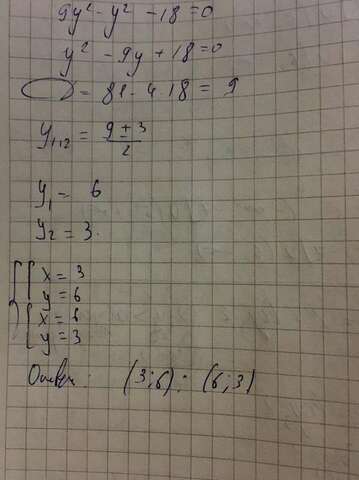 9y² - y² - 18 = 0
y² - 9y + 18 = 0
= 81 - 4·18 = 9
y₁,₂ = (9 ± 3)/2
y₁ = 6
y₂ = 3.
x = 3
y = 6
x = 6
y = 3
Ответ: (3;6); (6;3)